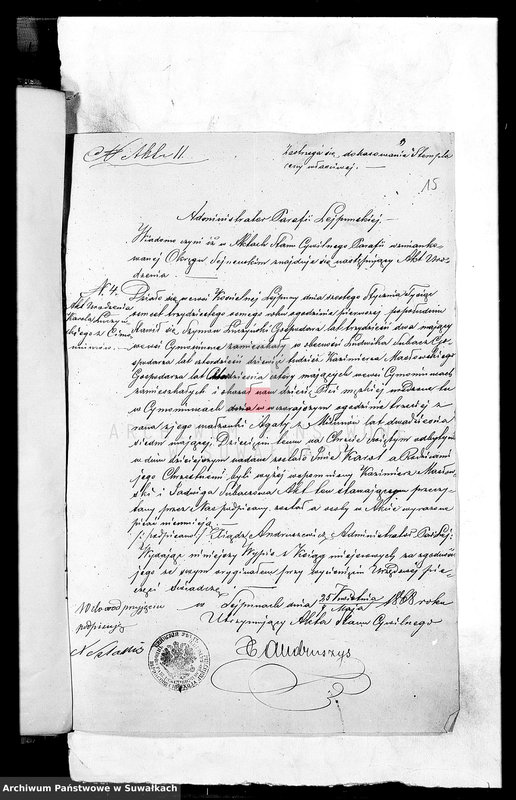 N Aktu 11.
Zastrzega się dokasowanie Stempla
ceny właściwej. —
15
Administrator Parafii Lejpunskiej. —
Wiadomo czyni iż w Aktach Stanu Cywilnego Parafii wzmianko-
wanej Okręgu Sejneńskim znajduje się następujący Akt Uro-
dzenia. —
N. 4.
Akt Urodzenia
Karola
Działo się we wsi Kościelnej Lejpuny dnia szóstego Stycznia Tysiąc
osmset trzydziestego osmego roku o godzinie pierwszej popołudniu
Stawił się Szymon Gospodarz lat trzydzieści dwa mający
we wsi zamieszkały w obecności Ludwika Go-
spodarza lat czterdzieści dziewięć tudzież Kazimierza Masłowskiego
Gospodarza lat cztery mających we wsi
zamieszkałych i okazał nam dziecię Płci męskiej urodzone tu
w dnia wczorajszym o godzinie trzeciej z
rana z jego małżonki Agaty z lat dwadzieścia
siedm mającej. Dziecięciu temu na Chrzcie świętym odbytym
w dniu dzisiejszym nadane zostało Imie Karol a Rodzicami
jego Chrzestnemi byli wyżej wspomniony Kazimierz Masłow-
ski i Jadwiga Akt ten stawającym przeczy-
tany przez Nas podpisany został a osoby w Akcie wyrażone
pisać nieumieją. —
/:podpisano:/ Xiądz Andruszewicz Administrator Par: Lej:
Wydając niniejszy Wypis z Xiąg miejscowych za zgodność
jego ze swym oryginałem przy wyciśnięciu Urzędowej pie-
częci świadczę
w Lejpunach dnia 25 Kwietnia / 7 Maja 1868 roku
Utrzymujący Akta Stanu Cywilnego
X Andruszys
Na dowód przyjęcia
podpisuję
Archiwum Państwowe w Suwałkach